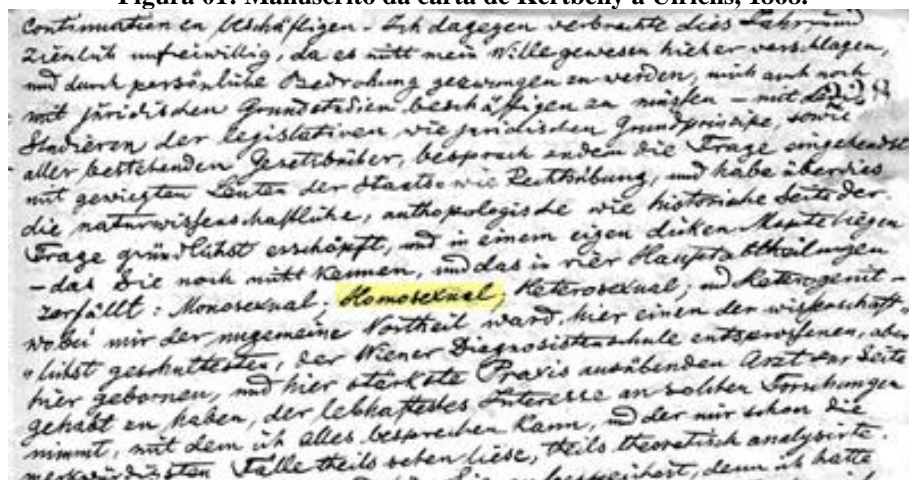 Figura 01: Manuscrito da carta de Kertbeny a Ulrichs, 1868.
Continuation en beschäftigen. Ich dagegen verbrachte dies Jahr, und
ziemlich unfreiwillig, da es nicht mein Wille gewesen hieher verschlagen,
und durch persönliche Bedrohung gezwungen zu werden, mich auch noch
mit juridischen Grundstudien beschäftigen zu müssen – mit
Studieren der legislativen wie juridischen Grundprinzipe, sowie
aller bestehenden Gesetzbücher, besprach zudem die Frage eingehendst
mit gewiegten Leuten der Staats wie Rechtsübung, und habe überdies
die naturwissenschaftliche, anthopologische wie historische Seite der
Frage gründlichst erschöpft, und in einem eigen dicken Mspte
– das Sie noch nicht kennen, und das in vier Hauptabtheilungen
zerfällt: Monosexual; Homosexual; Heterosexual; und Heterogenit –
wobei mir der ungemeine Vortheil ward, hier einen der wissenschaft=
"lichst geschultesten, der Wiener Diagnostistenschule entsprossenen, aber
hier gebornen, und hier stärkste Praxis ausübenden Arzt zur Seite
gehabt zu haben, der lebhaftestes Interesse an solchen Forschungen
nimmt, mit dem ich alles besprechen kann, und der mir schon die
merkwürdigsten Fälle theils sehen liess, theils theoretisch analysirte.
denn ich hatte